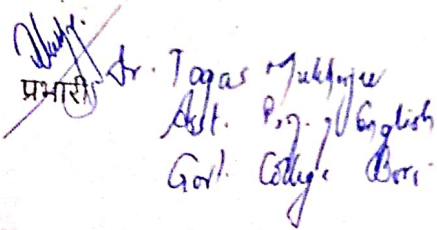 प्रभारी
Dr. Tapas Mukherjee
Asst. Prof. of English
Govt. College Bori